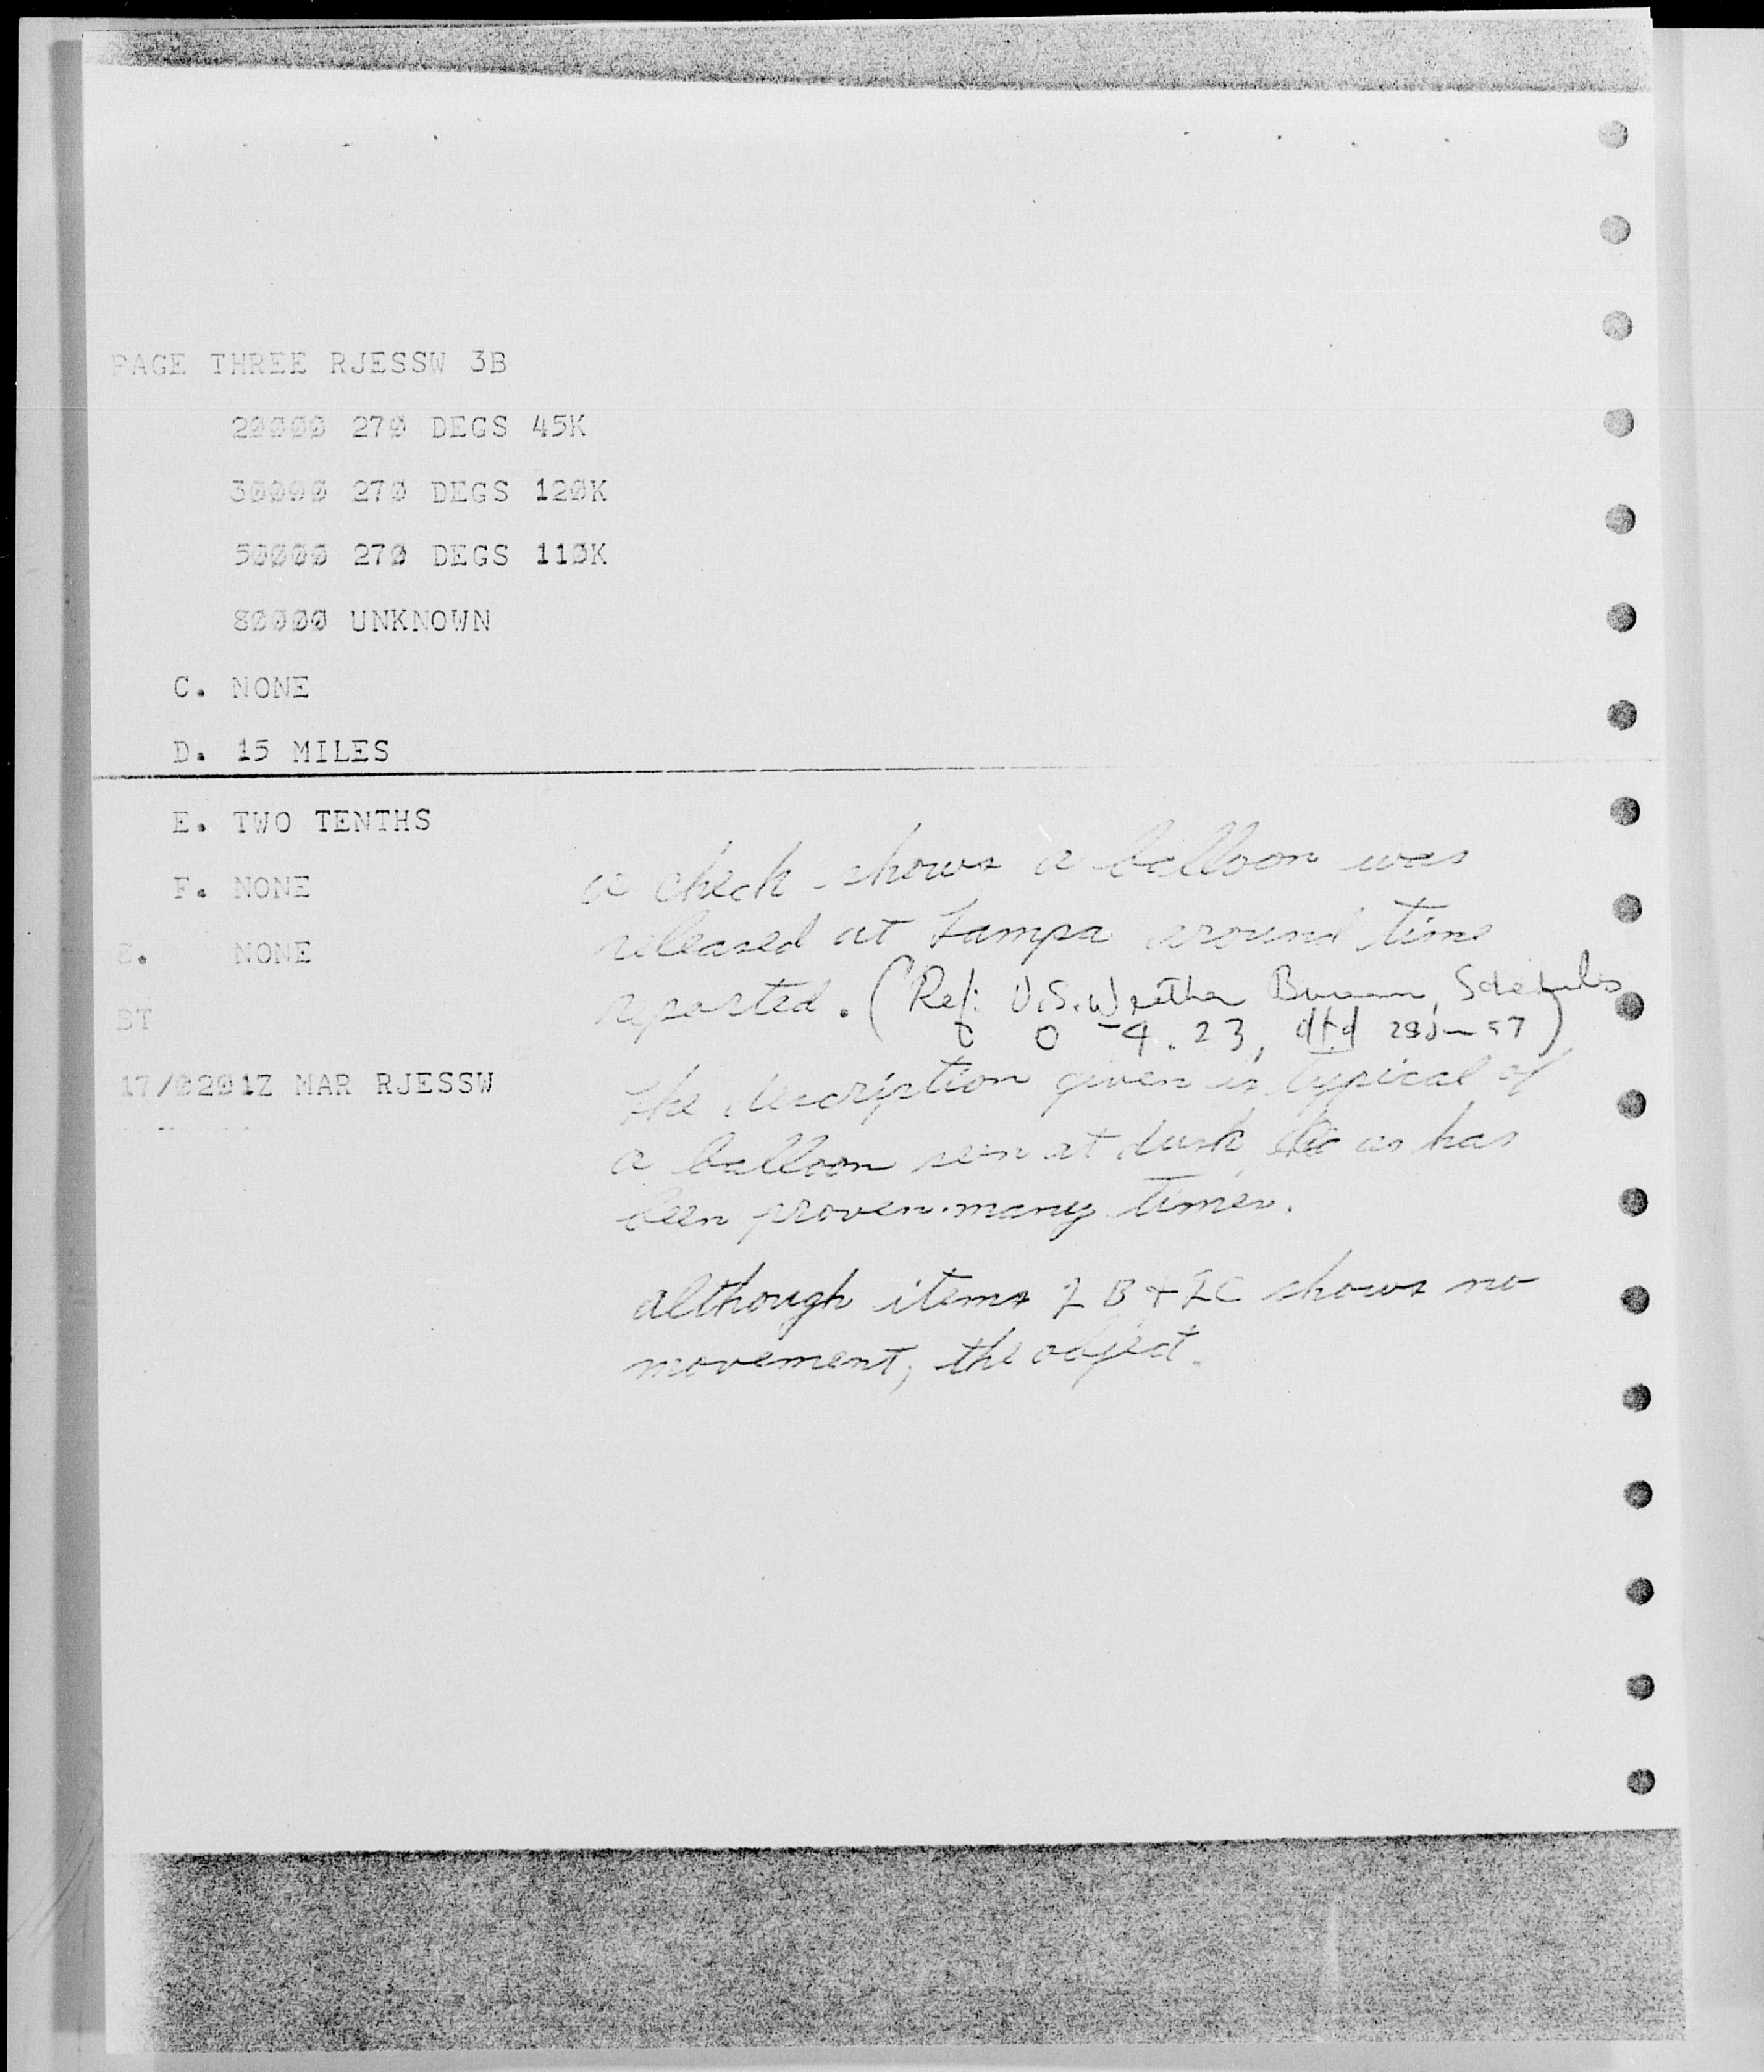 PAGE THREE RJESSW 3B
20000 270 DEGS 45K
30000 270 DEGS 120K
50000 270 DEGS 110K
80000 UNKNOWN
C. NONE
D. 15 MILES
E. TWO TENTHS
F. NONE
8. NONE
BT
17/0201Z MAR RJESSW
a check shows a balloon was
released at Tampa around time
reported. (Ref: U.S. Weather Bureau, Schedules
0-4.23, dtd 57)
The description given is typical of
a balloon seen at dusk as has
been proven many times.
although items 2 B + 2C shows no
movement, the object.